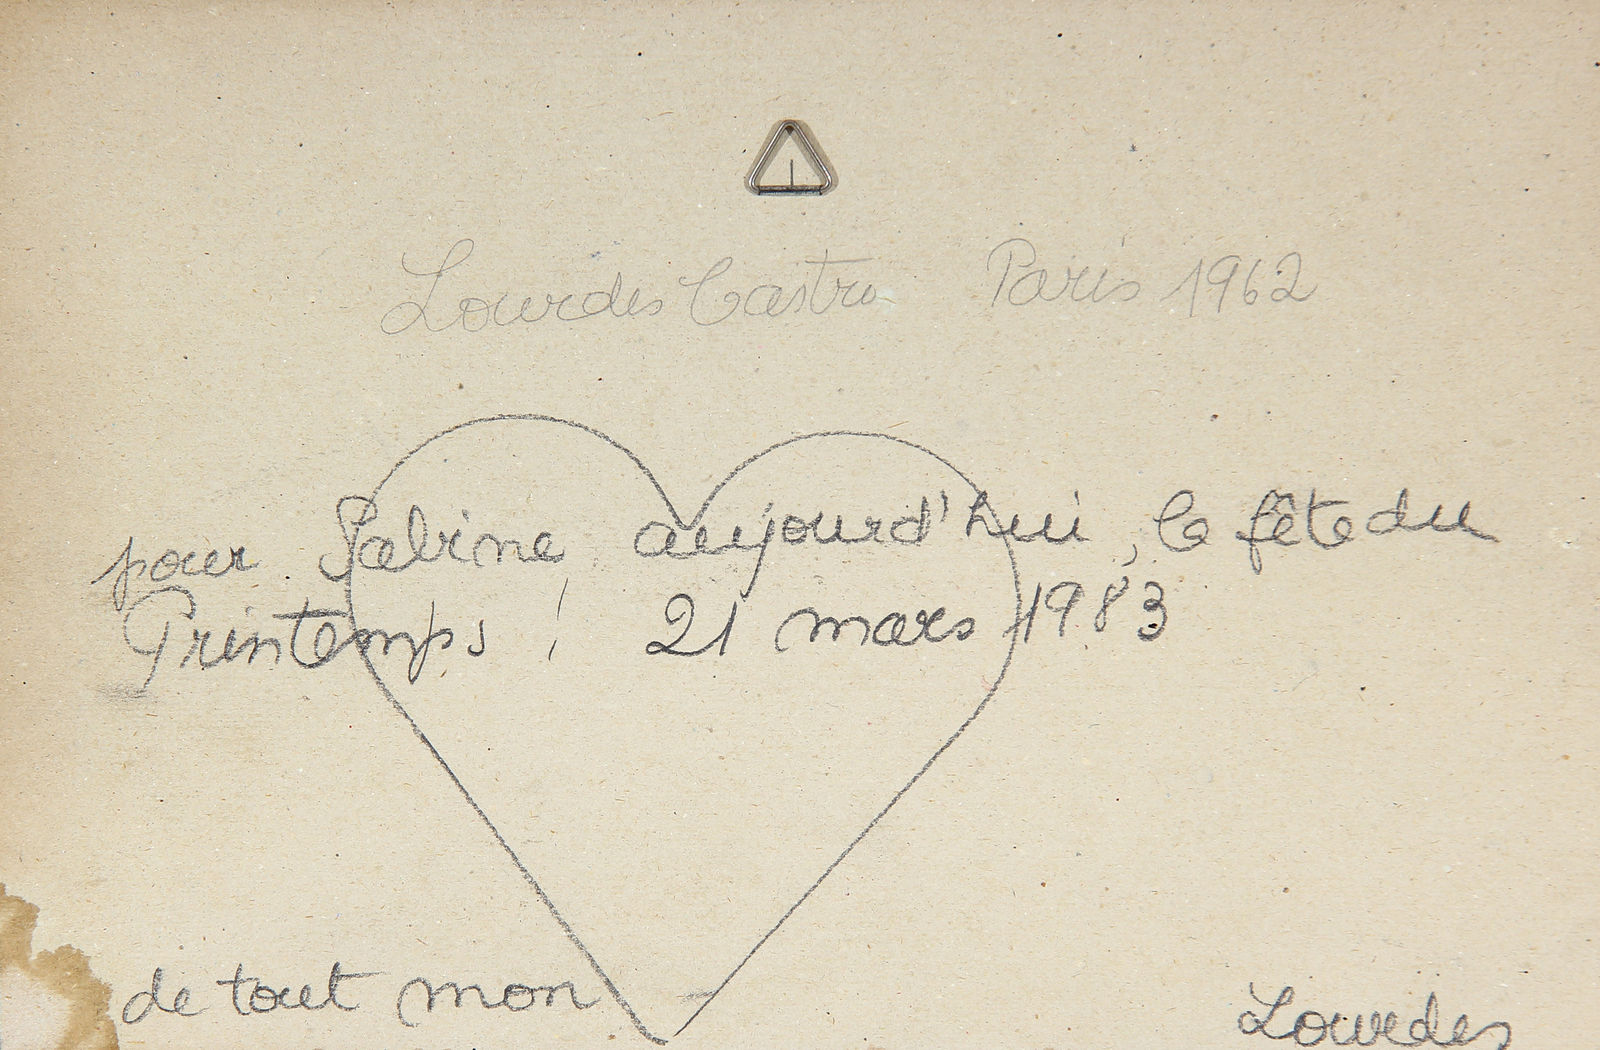 Lourdes Castro Paris 1962
pour Sabine, aujourd'hui, la fête du
Printemps ! 21 mars 1983
de tout mon
Lourdes